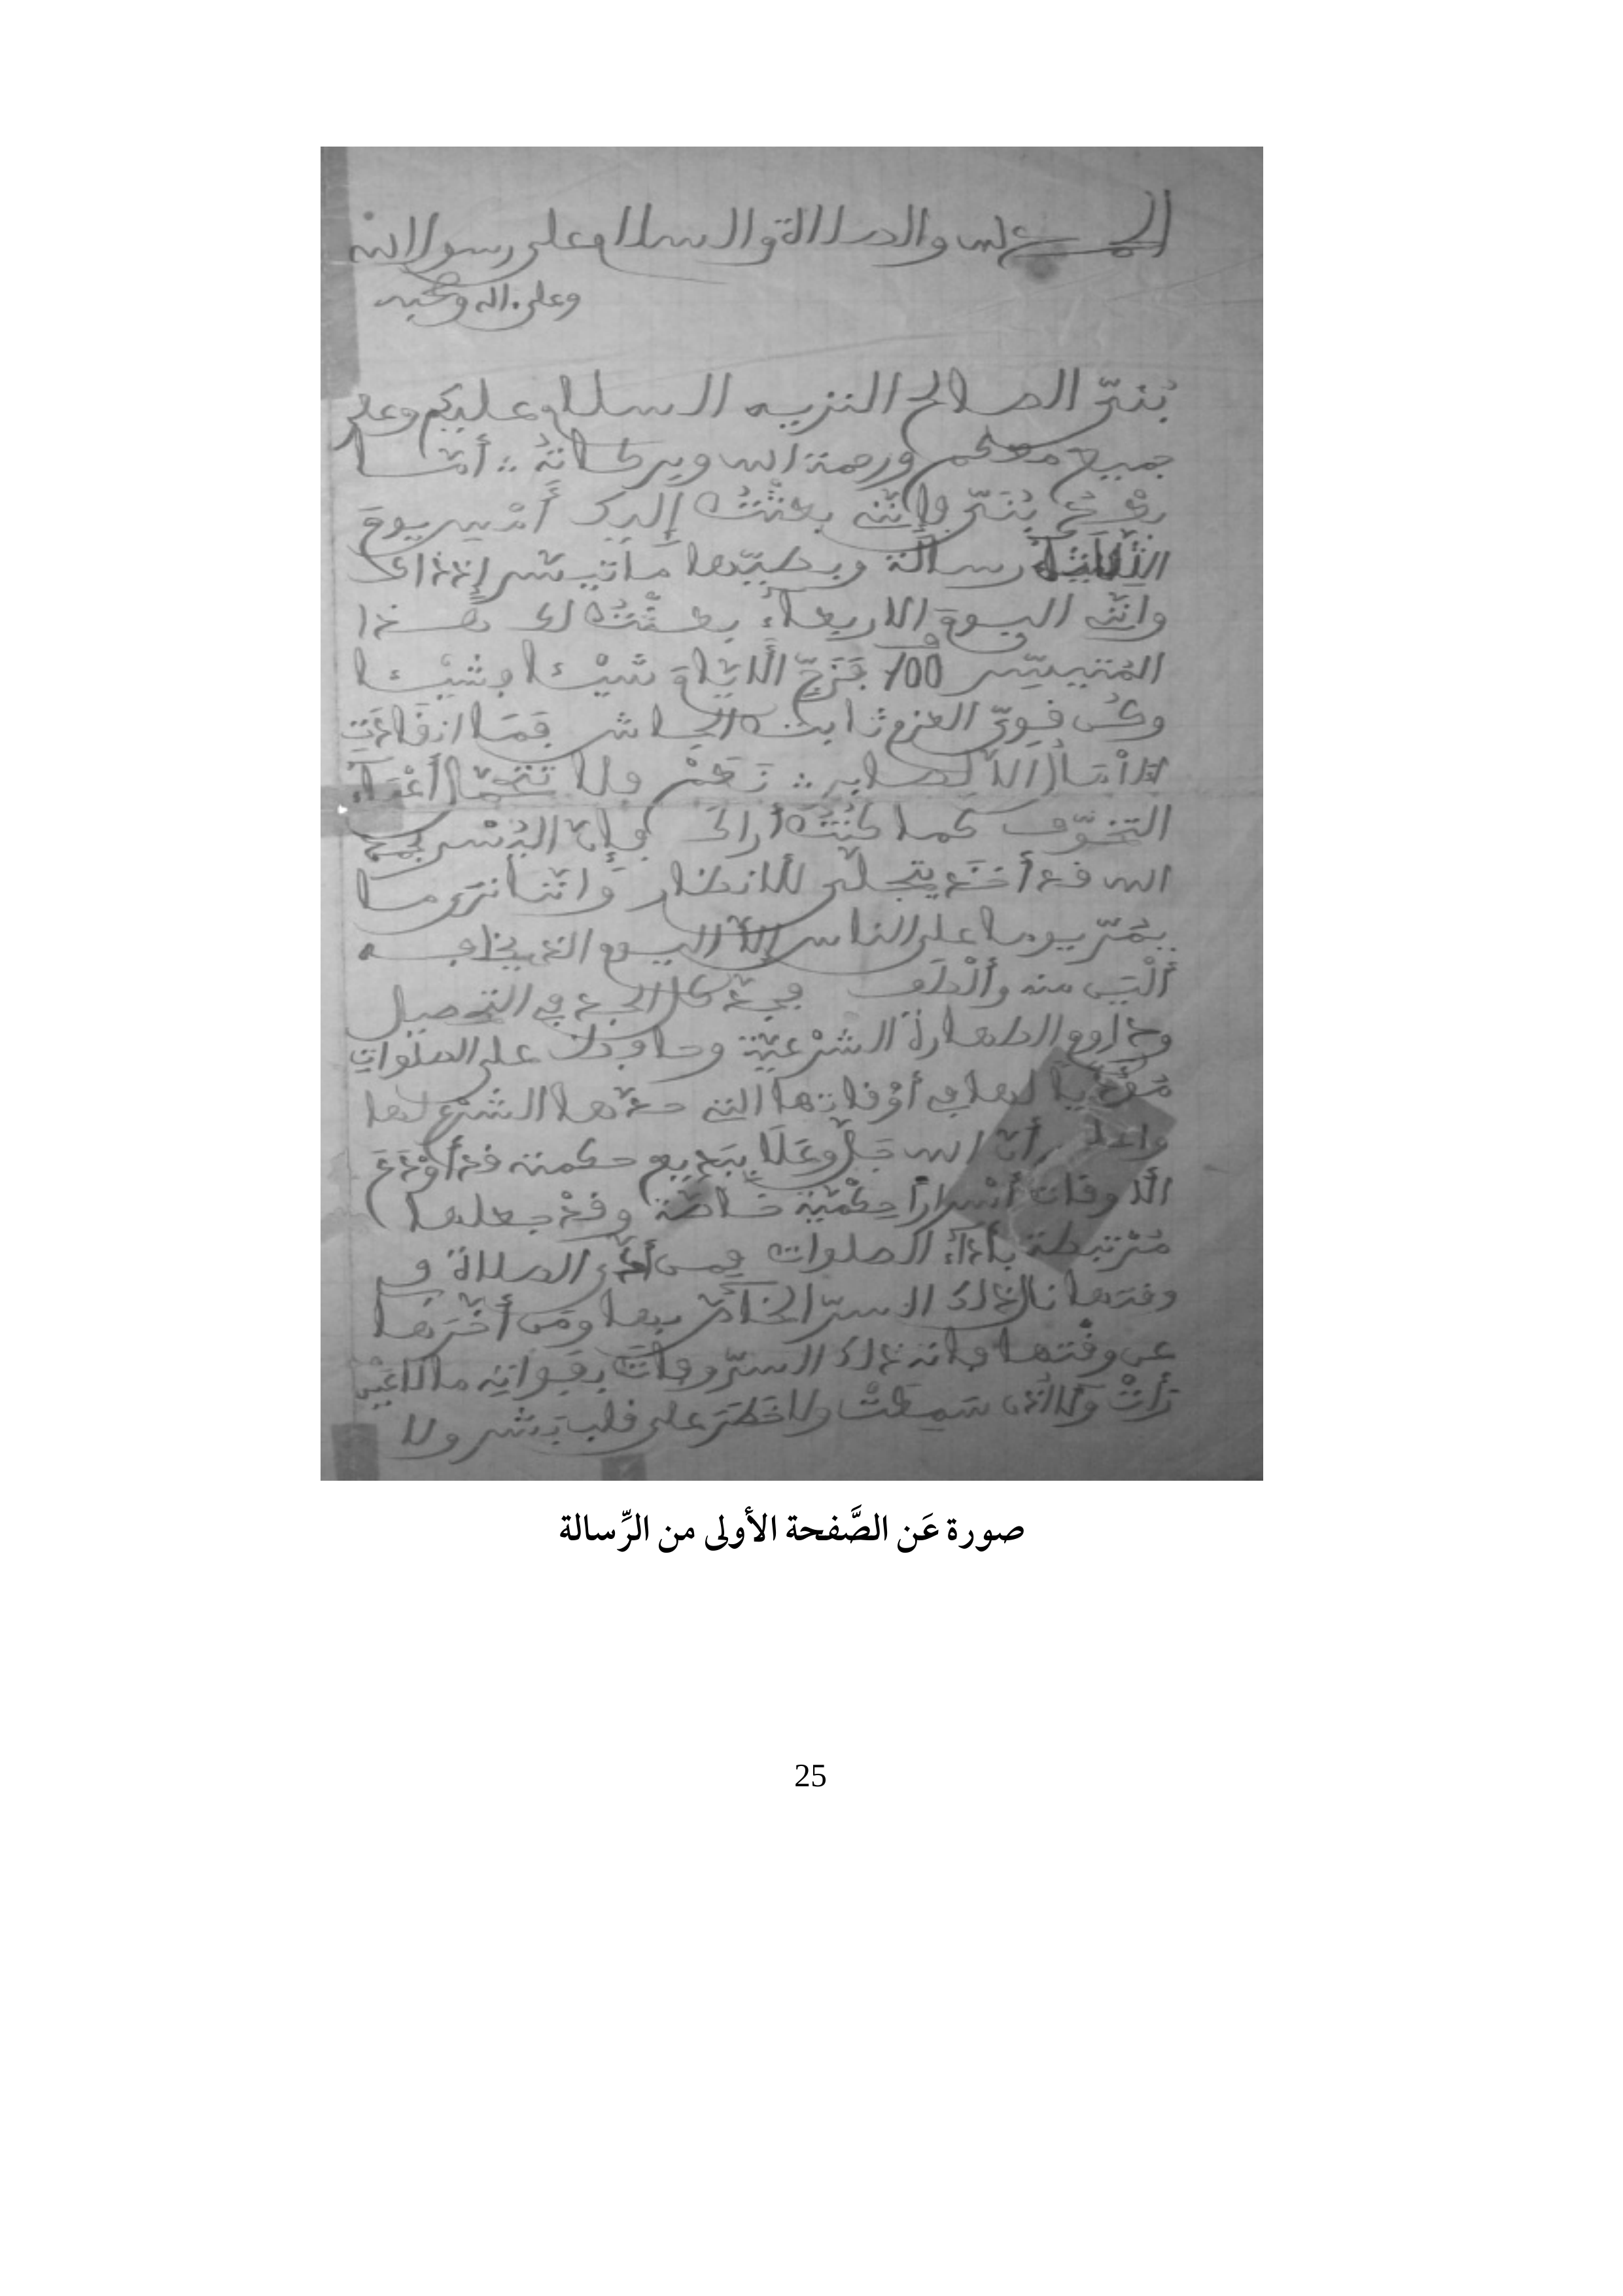 الحمد لله والصلاة والسلام على رسول الله
وعلى ءاله وصحبه
بُنيّ الصالح النزيه السلام عليكم وعلى
جميع معكم ورحمة الله وبركاتهُ :. أمّا
بعد بُنَيّ فإنّي بعثْتُ إليك أمْسِ يومَ
الثّلاثاء رسالة وبطيّها ما تيسّر إذ ذاك
وإنّي اليوم الاربعاءِ بعثْتُ لك هذا
المُتيسّر 100 فَزَجِّ الأيّامَ شيْئا فشيْئا
وكن قويّ العزم ثابت الجاش فَمَا انقَادَتِ
الآمَالُ إلاّ لصابر :. نَعَمْ ولا تتحمّل أعْبَاءَ
التخوّف كما كنْتُ أراكَ فإنّ اليُسْر بحمد
الله قد أخذ يتجلّى للانظار وانّنا نرى ما
يمُرّ يوما على الناس إلاّ اليوم الذي خلفه
ألْيَن منه وألْطَف فجِدّ كل الجد في التحصيل
وداوم الطهارة الشرْعيّة وحافظ على الصلوات
مُؤدّيا لها في أوْقاتها التي حدّها الشرع لها
واعلم أنّ الله جَلّ وعَلَا ببَديع حكمته قد أوْدَعَ
الأوقات أسْرارًا حِكْميّة خاصّة وقدْ جعلها
مُرْتبطة بأداء الصلوات فمن أدّى الصلاة في
وقتها نال ذلك السرّ الخاصّ بها ومَن أخّرَها
عن وقْتها فاته ذلك السرّ وفاتَ بفواته ما لا عَيْن
رَأتْ ولا أذُن سَمِعَتْ ولا خَطَرَ على قلب بَشر ولا
صورة عَن الصَّفحة الأولى من الرِّسالة
25